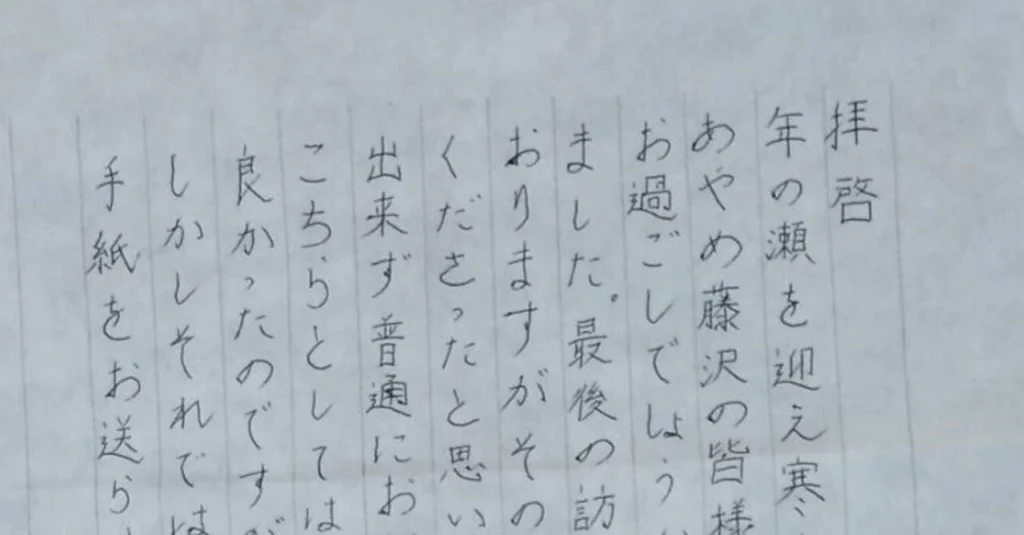 拝啓
年の瀬を迎え寒
あやめ藤沢の皆様
お過ごしでしょう
ました。最後の訪
おりますがその
くださったと思い
出来ず普通にお
こちらとしては
良かったのですが
しかしそれでは
手紙をお送ら